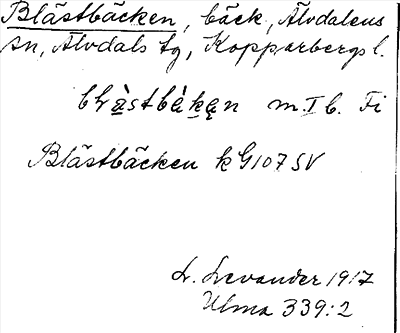 Blästbäcken, bäck, Älvdalens
sn, Älvdals tg, Kopparbergs l.
m. I b. Fi
Blästbäcken k G107 SV
L. Levander 1917
Ulma 339:2